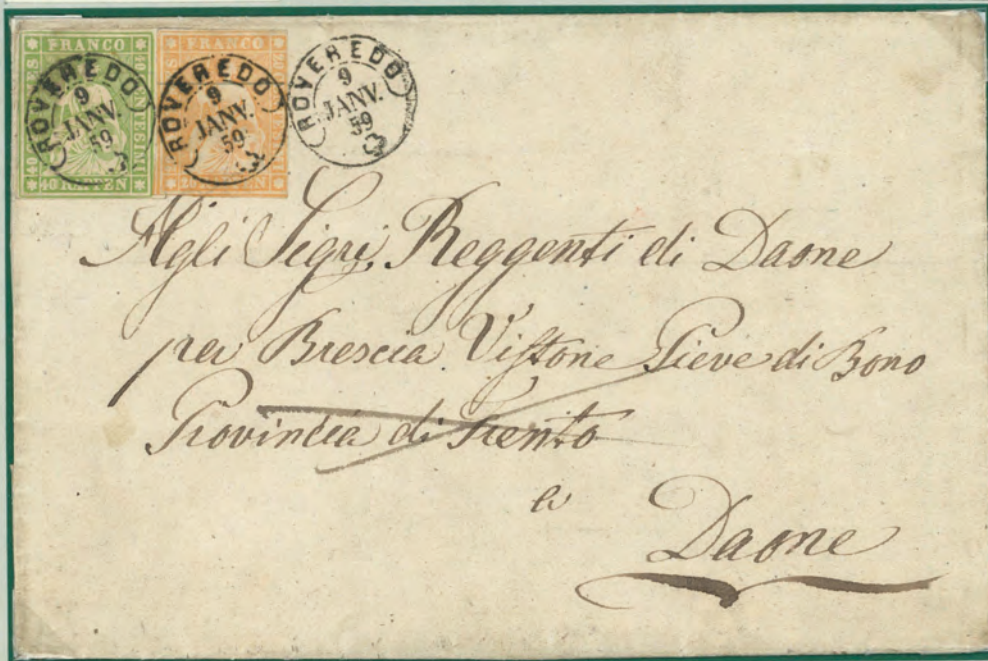 FRANCO FRANCO
40 RAPPEN 20 RAPPEN
ROVEREDO 9 JANV. 59
ROVEREDO 9 JANV. 59
ROVEREDO 9 JANV. 59
Agli Sigri Reggenti di Daone
per Brescia Vistone Pieve di Bono
Provincia di Trento
a
Daone